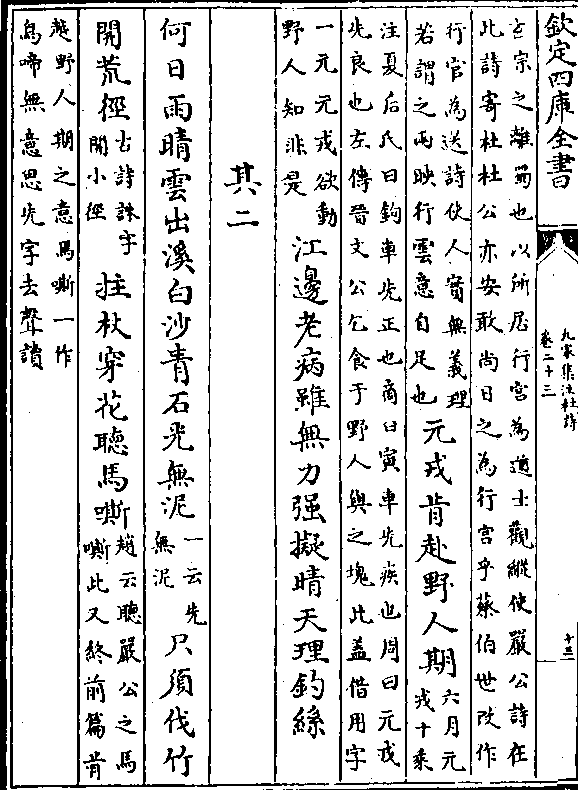 欽定四庫全書
九家集注杜詩
卷二十三
十三
玄宗之離蜀也以所居行宮為道士觀縱使嚴公詩在
此詩寄杜杜公亦安敢尚日之為行宮乎蔡伯世改作
行官為送詩伕人實無義理
若謂之雨映行雲意自足也
元戎肯赴野人期
六月元
戎十乘
注夏后氏曰鉤車先正也商曰寅車先疾也周曰元戎
先良也左傳晉文公乞食于野人與之塊此蓋借用字
一元元戎欲動
野人知非是
江邊老病雖無力强擬晴天理釣絲
其二
何日雨晴雲出溪白沙青石光無泥
一云先
無泥
只須伐竹
開荒徑
古詩誅字
開小徑
拄杖穿花聽馬嘶
趙云聽嚴公之馬
嘶此又終前篇肯
赴野人期之意馬嘶一作
鳥啼無意思先字去聲讀